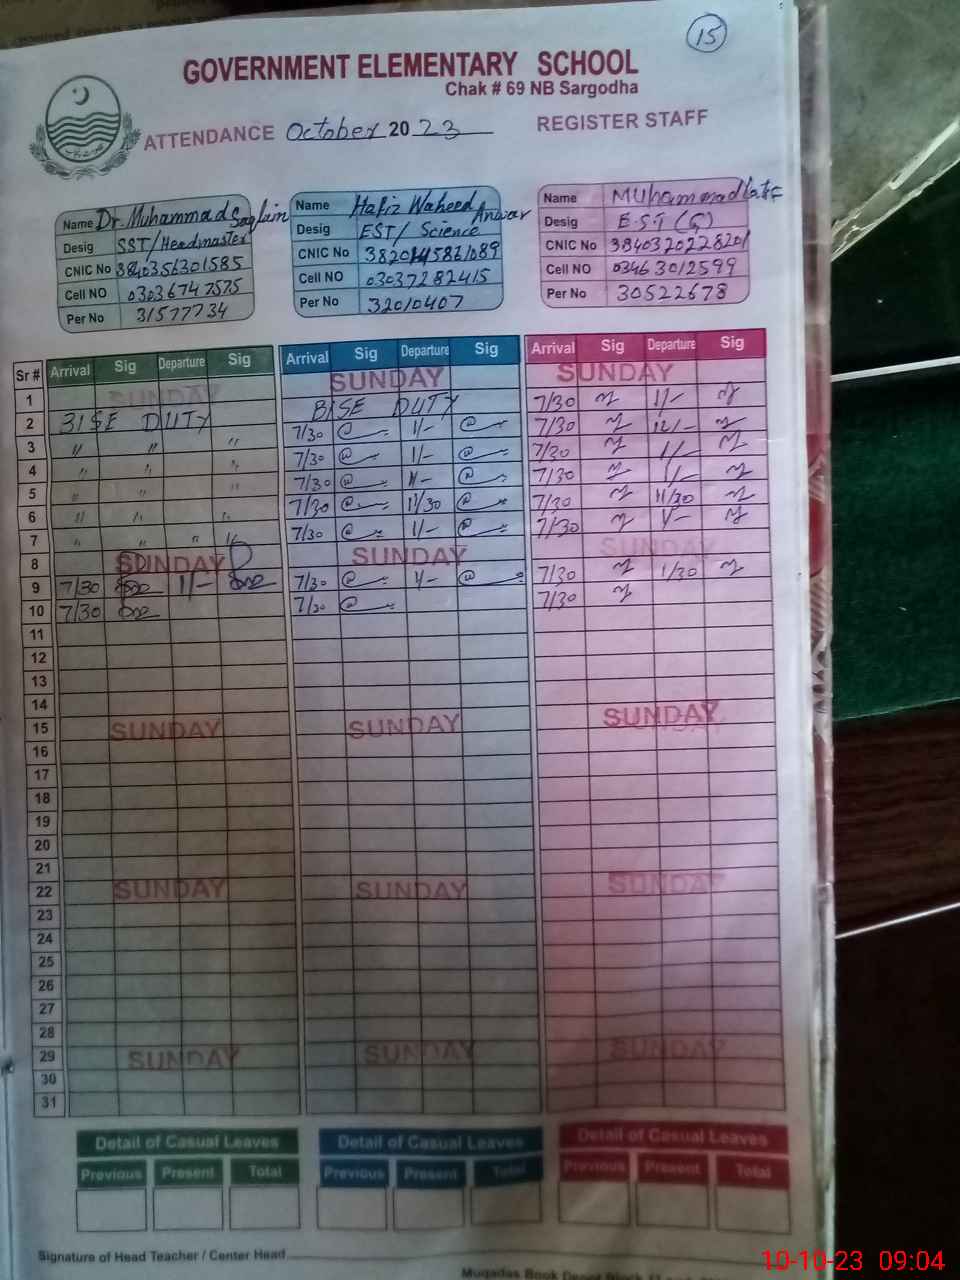 15
GOVERNMENT ELEMENTARY SCHOOL
Chak # 69 NB Sargodha
ATTENDANCE October 2023 REGISTER STAFF
Name Dr. Muhammad Saqlain
Desig SST/Headmaster
CNIC No 3840356301585
Cell NO 03036747575
Per No 31577734
Name Hafiz Waheed Anwar
Desig EST/ Science
CNIC No
Cell NO 03037282415
Per No 32010407
Name Muhammad Latif
Desig E.S.T (G)
CNIC No 3840320228201
Cell NO 03463012599
Per No 30522678
Sr # Arrival Sig Departure Sig Arrival Sig Departure Sig Arrival Sig Departure Sig
1 SUNDAY SUNDAY SUNDAY
2 BISE DUTY BISE DUTY 7/30 1/-
3 " " " 7/30 1/- 7/30 12/-
4 " " " 7/30 1/- 7/30 1/-
5 " " " 7/30 1/- 7/30 1/-
6 " " " 7/30 11/30 7/30 11/30
7 " " " " 7/30 1/- 7/30 1/-
8 SUNDAY SUNDAY SUNDAY
9 7/30 1/- 7/30 1/- 7/30 1/30
10 7/30 7/30 7/30
11
12
13
14
15 SUNDAY SUNDAY SUNDAY
16
17
18
19
20
21
22 SUNDAY SUNDAY SUNDAY
23
24
25
26
27
28
29 SUNDAY SUNDAY SUNDAY
30
31
Detail of Casual Leaves Detail of Casual Leaves Detail of Casual Leaves
Previous Present Total Previous Present Total Previous Present Total
Signature of Head Teacher / Center Head
Muqadas Book Depot Block
10-10-23 09:04